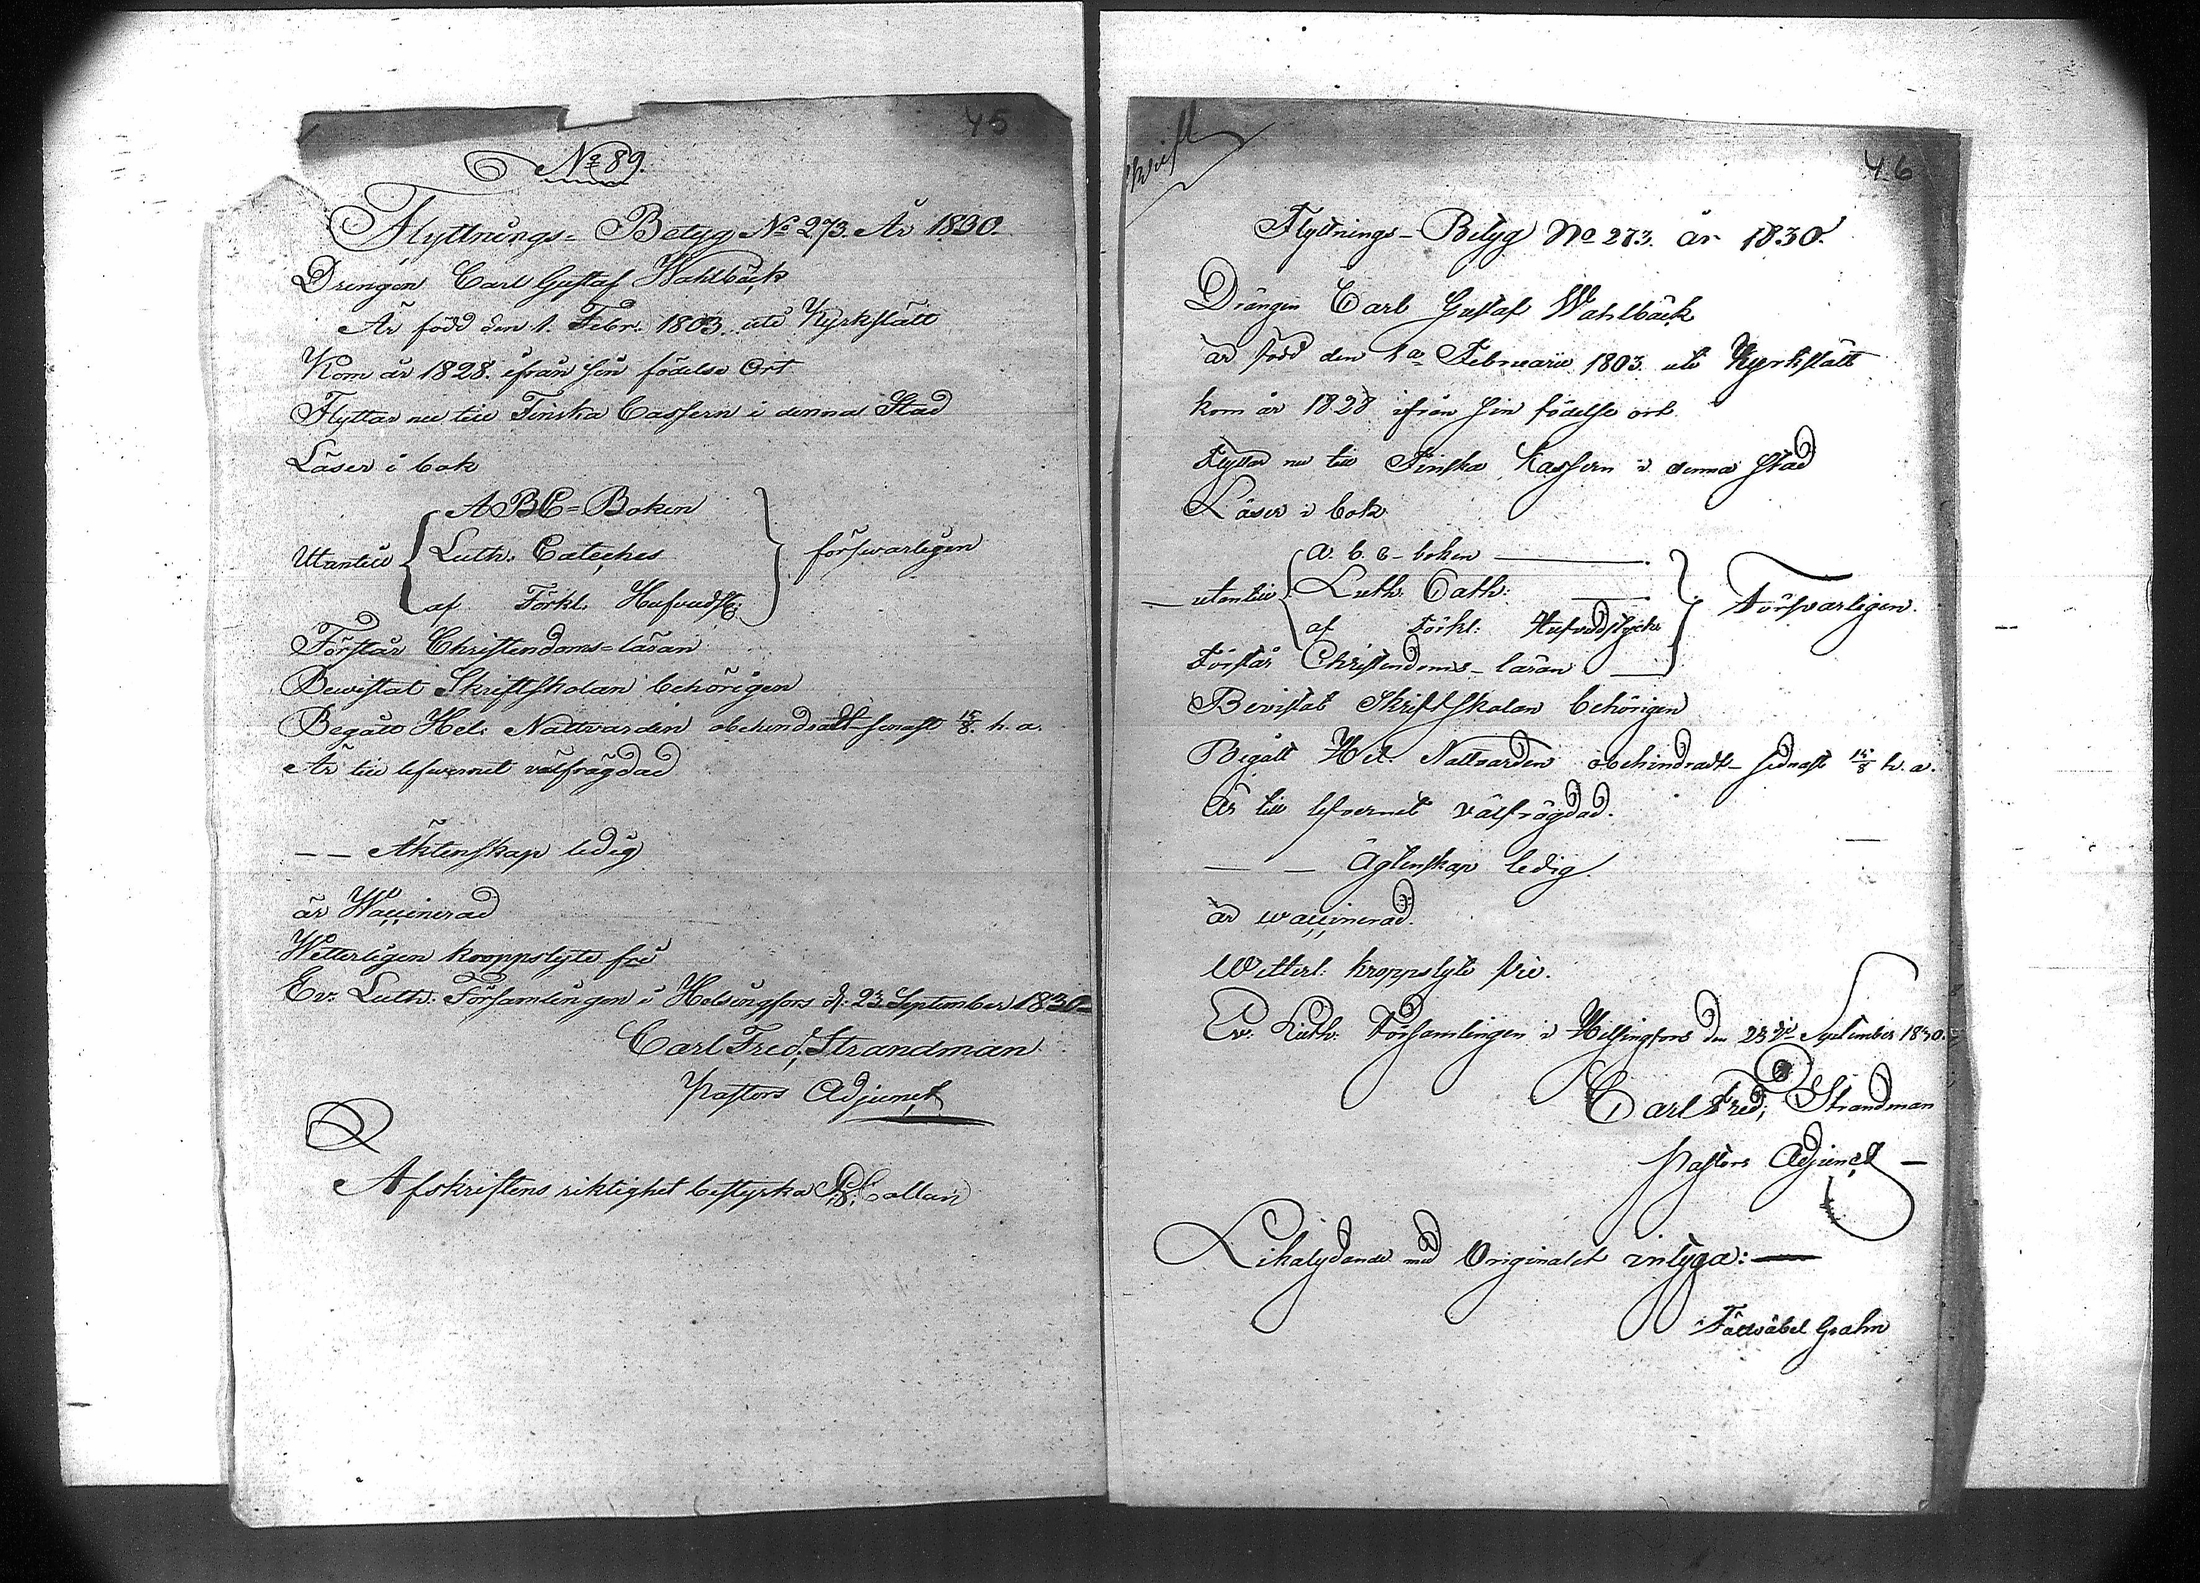 45
No 89.
Flyttnings= Betyg No 273. År 1830.
Drengen Carl Gustaf Wahlbäck
Är född den 1. Febr. 1803. uti Kyrkslätt
Kom år 1828. ifrån sin födelse Ort
Flyttar nu till Finska Cassern i denna Stad
Läser i bok
ABC=Boken
Utantill Luth. Cateches försvarligen
af Förkl. Hufvudst:
Förstår Christendoms=läran
Bewistat Skriftskolan behörigen
Begått Hel: Nattvarden obehindradt senast 15/8. h. a.
Är till lefvernet välfrägdad
— — Äktenskap ledig
är Waccinerad
Wetterligen kroppslyte fri
Ev. Luth. Församlingen i Helsingfors d: 23. September 1830=
Carl Fred. Strandman
Pastors Adjunct
Afskriftens riktighet bestyrka Callan
46
Flyttnings-Betyg No 273. år 1830.
Drängen Carl Gustaf Wahlbäck
är född den 1a Februarii 1803. uti Kyrkslätt
kom år 1828 ifrån sin födelse ort.
Flyttar nu till Finska Kassern i denna stad
Läser i bok
a. b. c-boken
utantill Luth. Cath: Försvarligen.
af Förkl: Hufvudstycke
Förstår Christendoms-läran
Bevistat Skriftskolan behörigen
Begått Hel. Nattvarden obehindradt- sednast 15/8 h. a.
Är till lefvernet välfrägdad.
— — Ägtenskap ledig.
är waccinerad.
Witterl: kroppslyte fri.
Ev. Luth. Församlingen i Helsingfors den 23de September 1830.
Carl Fred; Strandman
Pastors Adjunct —
Likalydande med Originalet intyga:—
Fältväbel Grahn